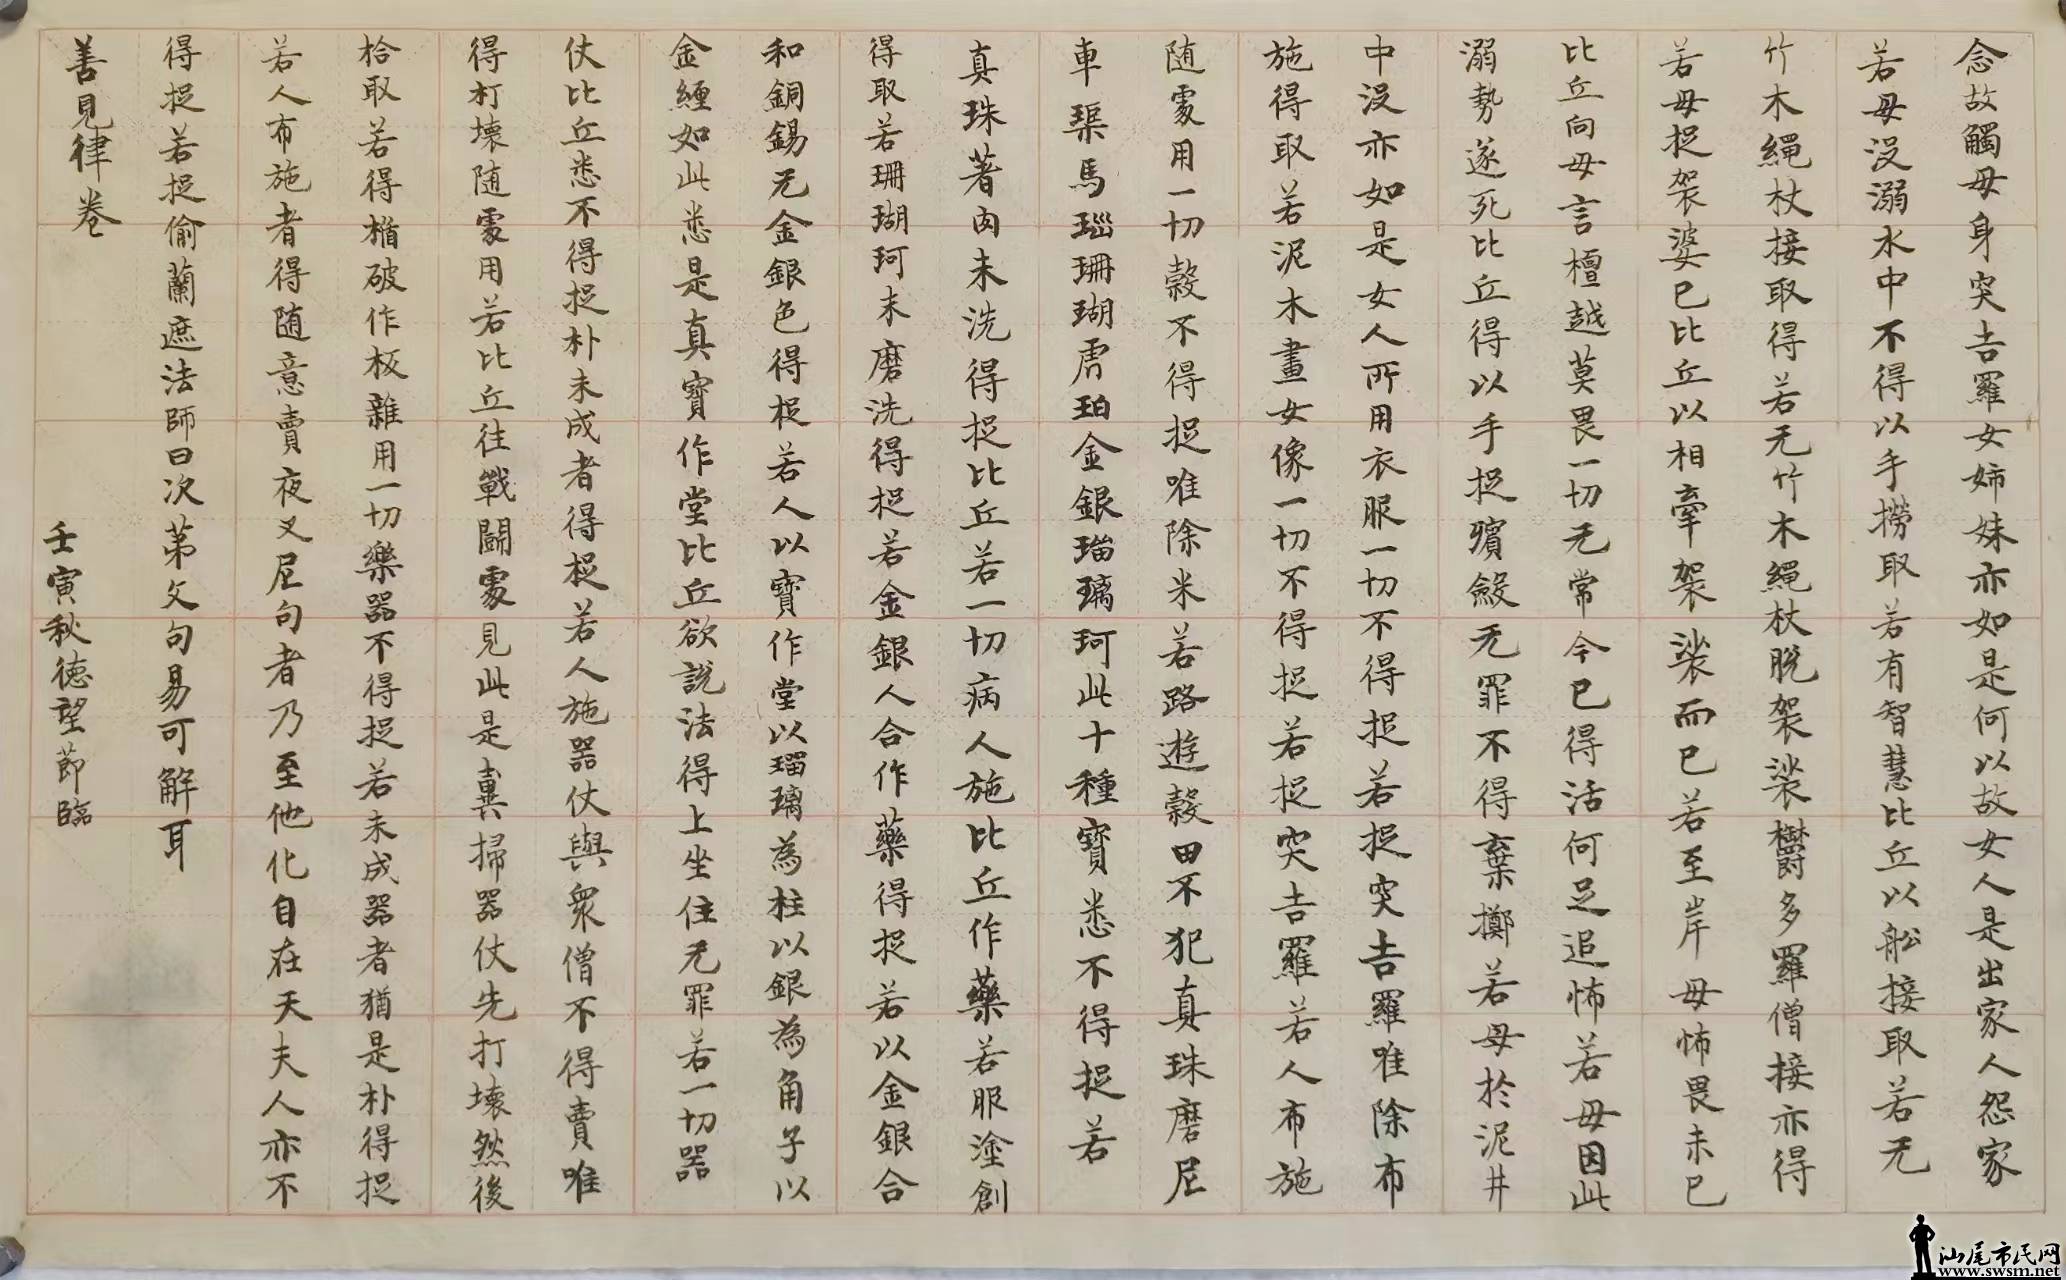 念故觸母身突吉羅女姉妹亦如是何以故女人是出家人怨家
若母没溺水中不得以手撈取若有智慧比丘以舩接取若无
竹木繩杖接取得若无竹木繩杖脱袈裟欝多羅僧接亦得
若母捉袈婆已比丘以相牽袈裟而已若至岸母怖畏未已
比丘向母言檀越莫畏一切无常今已得活何足追怖若母因此
溺勢遂死比丘得以手捉殯殮无罪不得棄擲若母於泥井
中没亦如是女人所用衣服一切不得捉若捉突吉羅唯除布
施得取若泥木畫女像一切不得捉若捉突吉羅若人布施
随處用一切穀不得捉唯除米若路遊穀田不犯真珠磨尼
車渠馬瑙珊瑚虎珀金銀瑠璃珂此十種寶悉不得捉若
真珠著肉未洗得捉比丘若一切病人施比丘作藥若服塗創
得取若珊瑚珂未磨洗得捉若金銀人合作藥得捉若以金銀合
和銅錫无金銀色得捉若人以寶作堂以瑠璃為柱以銀為角子以
金纏如此悉是真寶作堂比丘欲説法得上坐住无罪若一切器
仗比丘悉不得捉朴未成者得捉若人施器仗與衆僧不得賣唯
得打壊随處用若比丘往戰鬪處見此是糞掃器仗先打壊然後
拾取若得楯破作板雜用一切樂器不得捉若未成器者猶是朴得捉
若人布施者得随意賣夜叉尼句者乃至他化自在天夫人亦不
得捉若捉偷蘭遮法師曰次第文句易可解耳
善見律卷
壬寅秋德望節臨
汕尾市民网
www.swsm.net